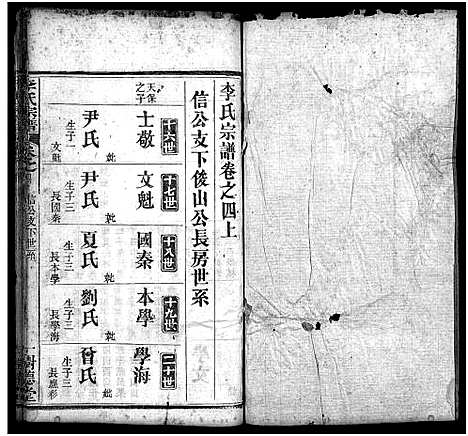 李氏宗譜卷之四上
信公支下俊山公長房世系
十六世
十七世
十八世
十九世
二十世
天保之子
士敬
文魁
國秦
本學
學海
尹氏
生子一
文魁
尹氏
生子三
長國秦
夏氏
生子三
長本學
劉氏
生子三
長學海
曾氏
生子三
長庭彩
李氏宗譜
信公支下世系
樹德堂